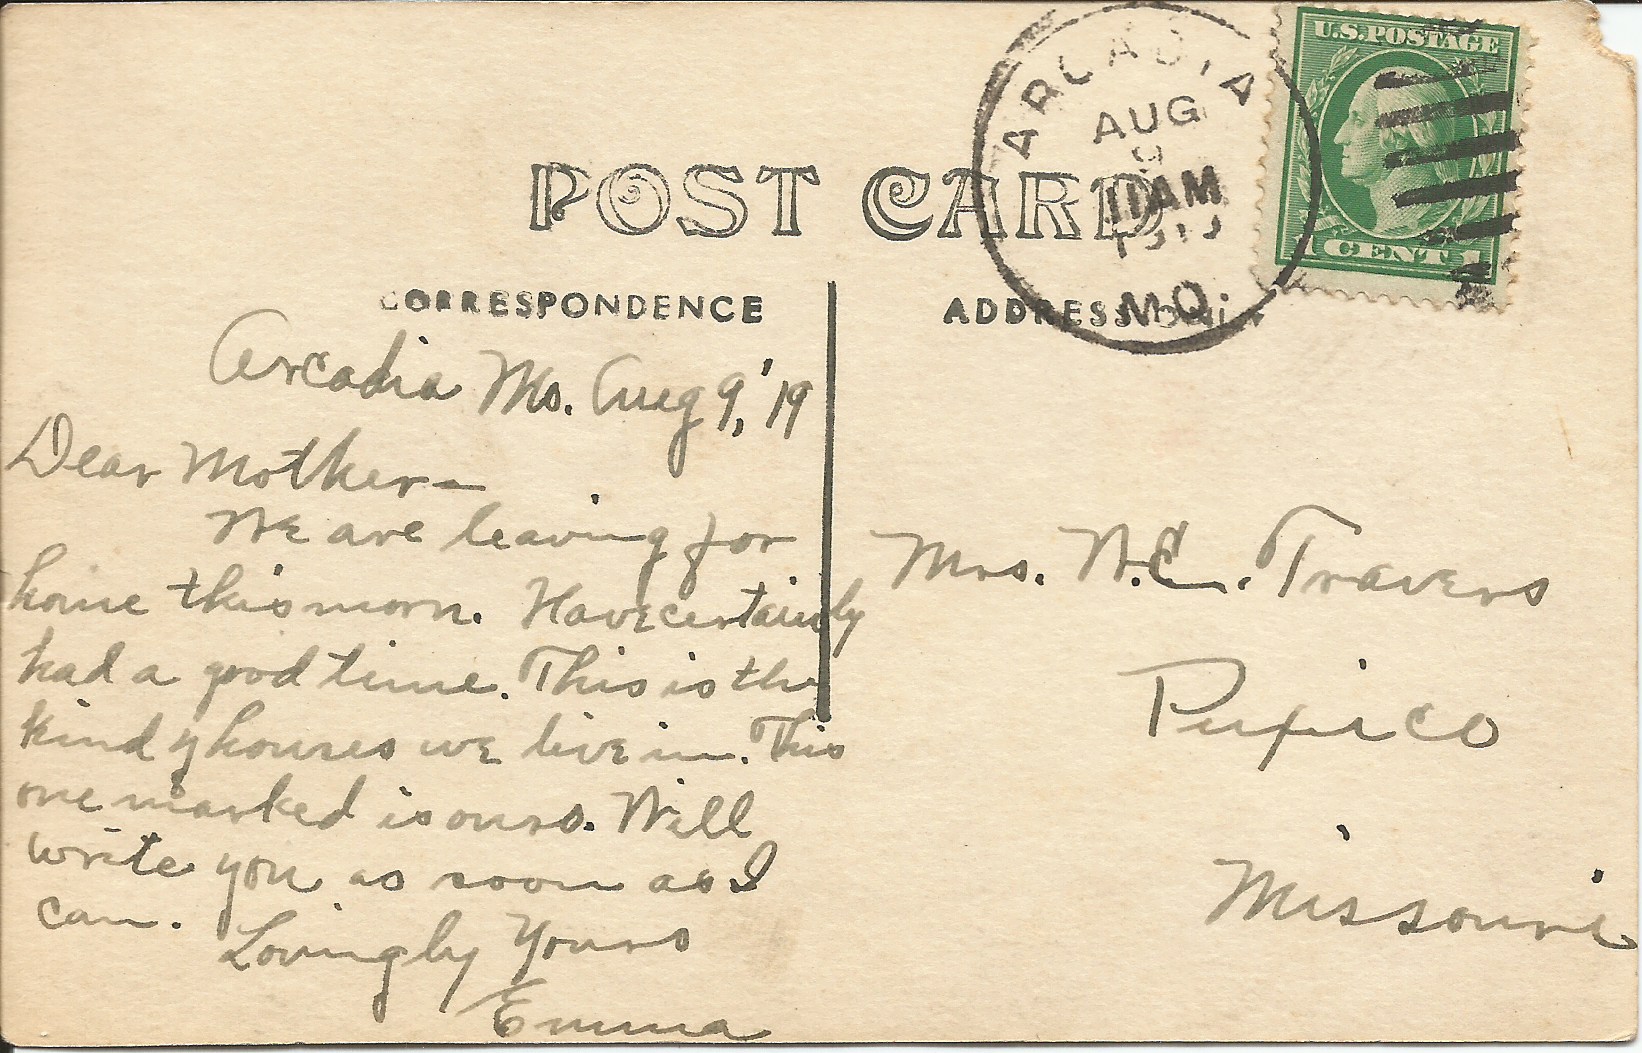 POST CARD
U.S.POSTAGE
1 CENT 1
ARCADIA
AUG
9
11AM
1919
MO.
CORRESPONDENCE
ADDRESS
Arcadia Mo. Aug 9, '19
Dear Mother-
We are leaving for
home this morn. Have certainly
had a good time. This is the
kind of houses we live in. This
one marked is ours. Will
write you as soon as I
can.
Lovingly Yours
Emma
Mrs. N.E. Travers
Puxico
Missouri